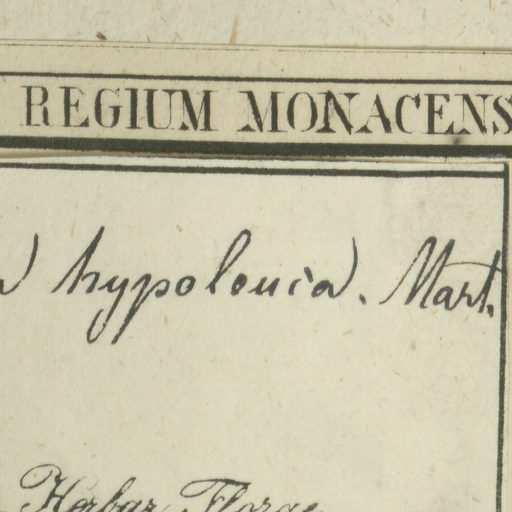 REGIUM MONACENS
hypoleuca. Mart.
Herbar. Florae